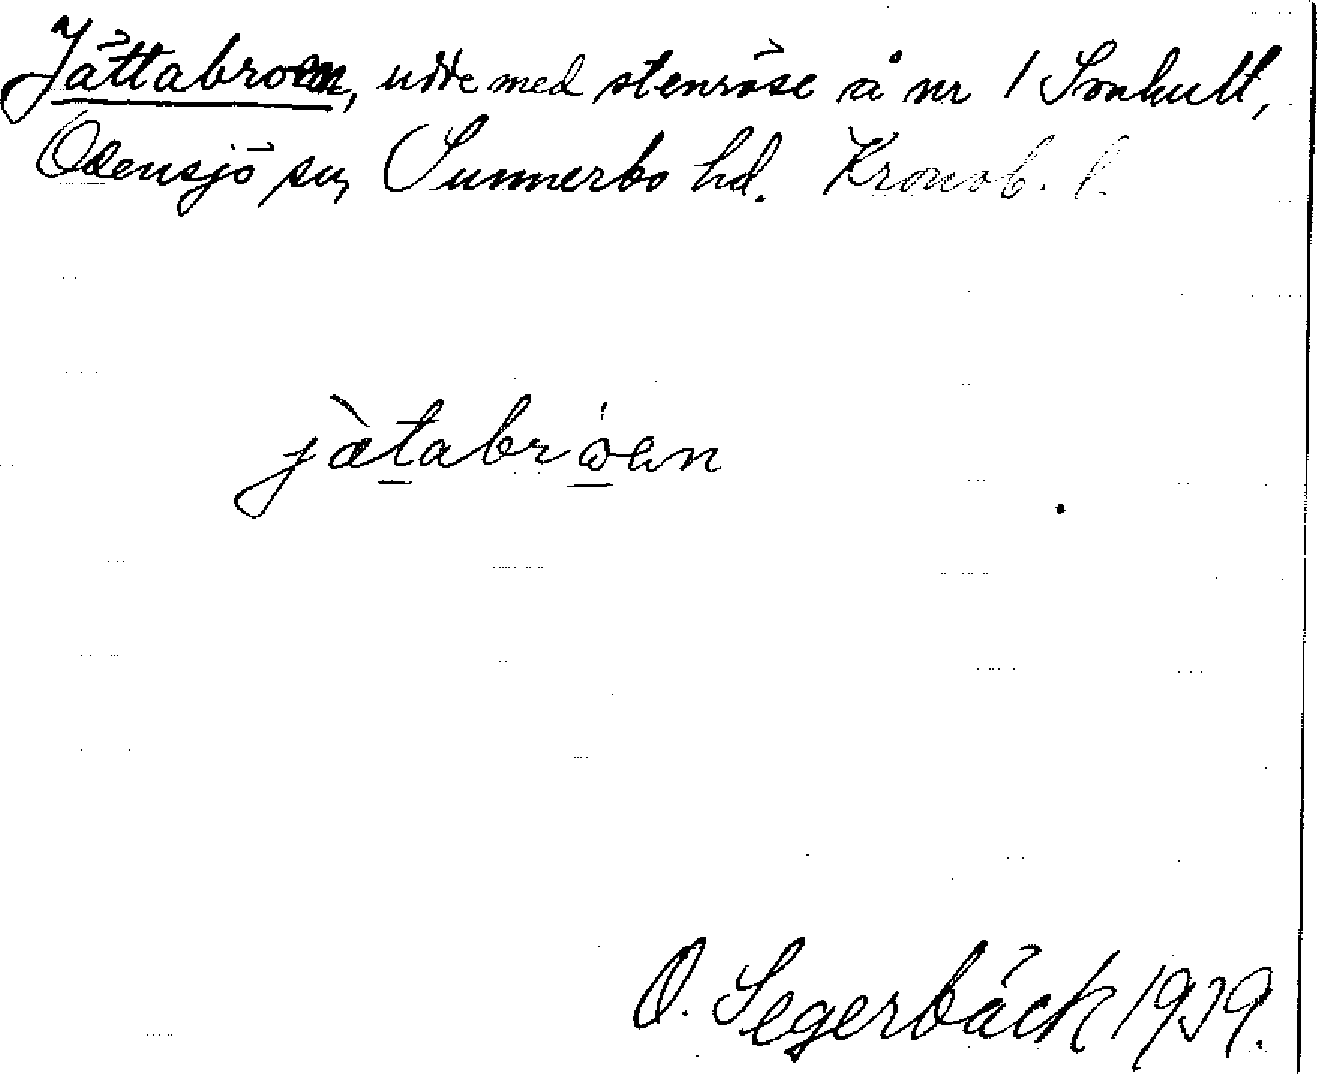 Jättabroen, udde med stenröse å nr 1 Svahult,
Odensjö sn, Sunnerbo hd. Kronob. l.
jàtabróen
O. Segerbäck 1939.